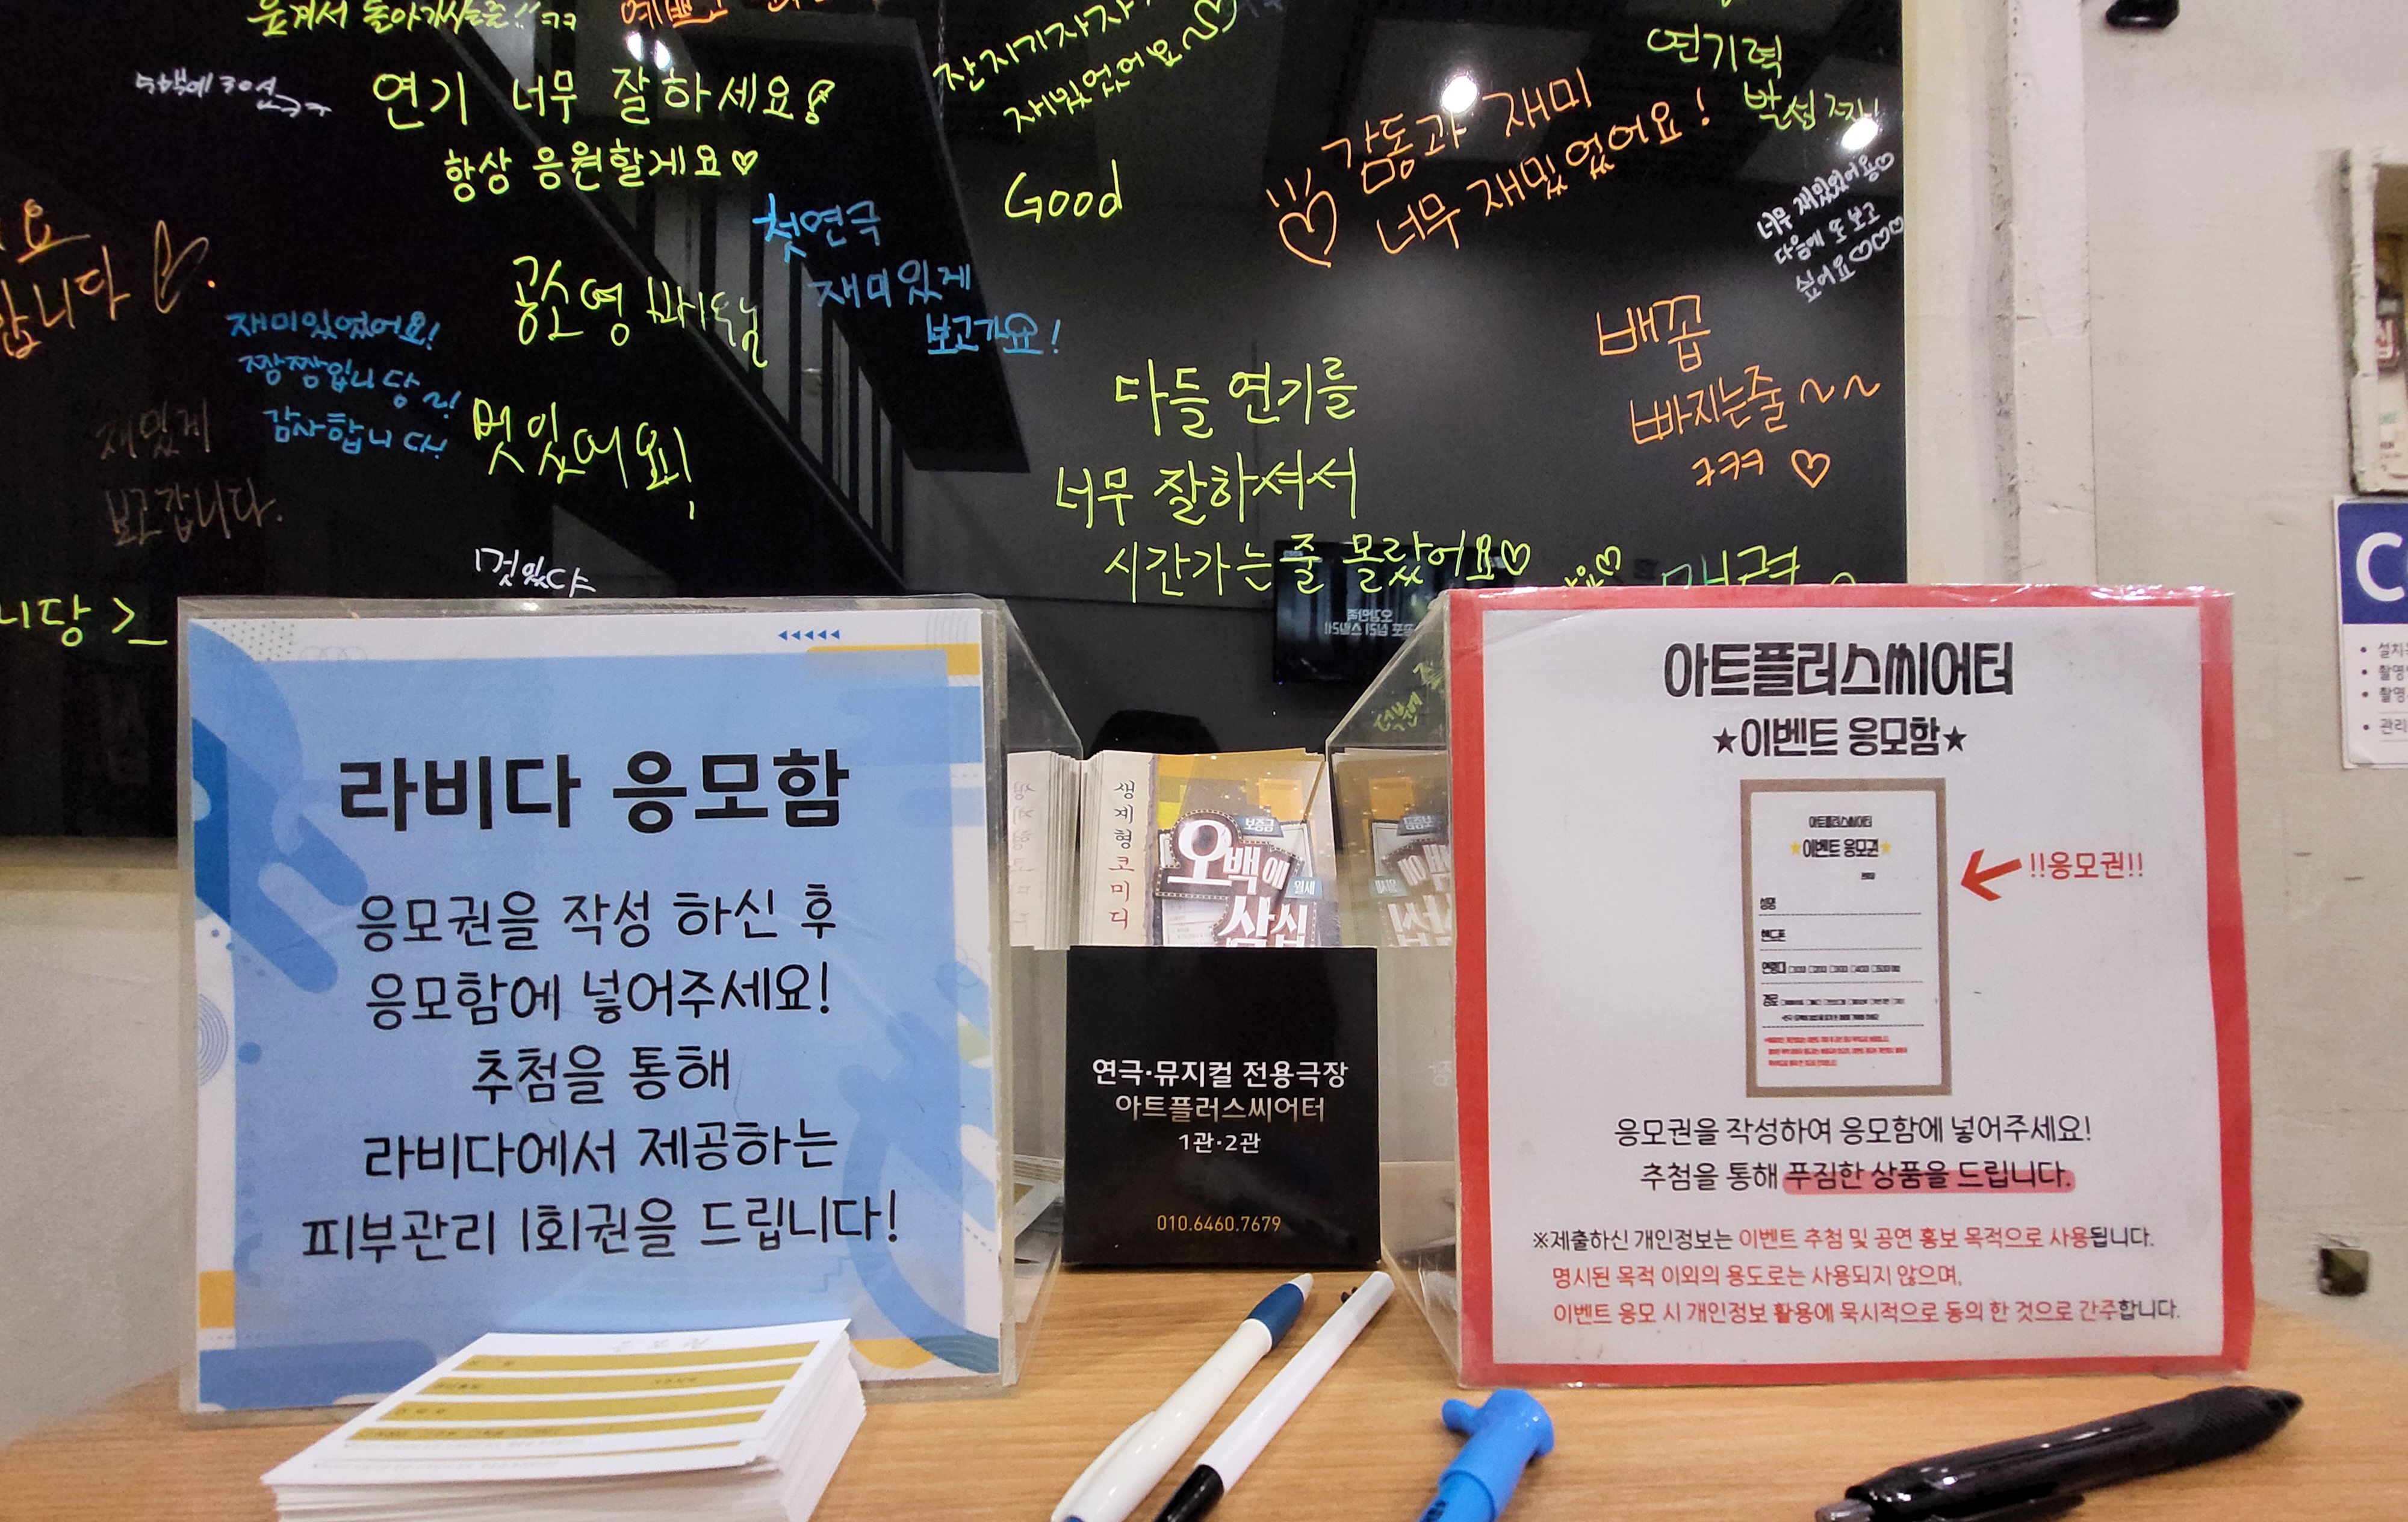 연기 너무 잘하세요
항상 응원할게요♡
재밌었어요
Good
감동과 재미
너무 재밌었어요!
연기력
너무 재밌었어용♡
다음에 또 보고
싶어요♡♡♡
첫연극
재미있게
보고가요!
공소영 배우님
멋있어요!
재미있었어요!
짱짱입니당~!
감사합니다!
재밌게
보고갑니다.
멋있다
다들 연기를
너무 잘하셔서
시간가는 줄 몰랐어요♡
배꼽
빠지는줄~~
ㅋㅋㅋ ♡
매력
니당 >_
라비다 응모함
응모권을 작성 하신 후
응모함에 넣어주세요!
추첨을 통해
라비다에서 제공하는
피부관리 1회권을 드립니다!
생계형코미디
보증금
오백에
월세
삼십
연극·뮤지컬 전용극장
아트플러스씨어터
1관·2관
010.6460.7679
아트플러스씨어터
★이벤트 응모함★
아트플러스씨어터
★이벤트 응모권★
성명
핸드폰
연령대
경로
!!응모권!!
응모권을 작성하여 응모함에 넣어주세요!
추첨을 통해 푸짐한 상품을 드립니다.
※제출하신 개인정보는 이벤트 추첨 및 공연 홍보 목적으로 사용됩니다.
명시된 목적 이외의 용도로는 사용되지 않으며,
이벤트 응모 시 개인정보 활용에 묵시적으로 동의 한 것으로 간주합니다.
C
• 설치
• 촬영
• 촬영
• 관리